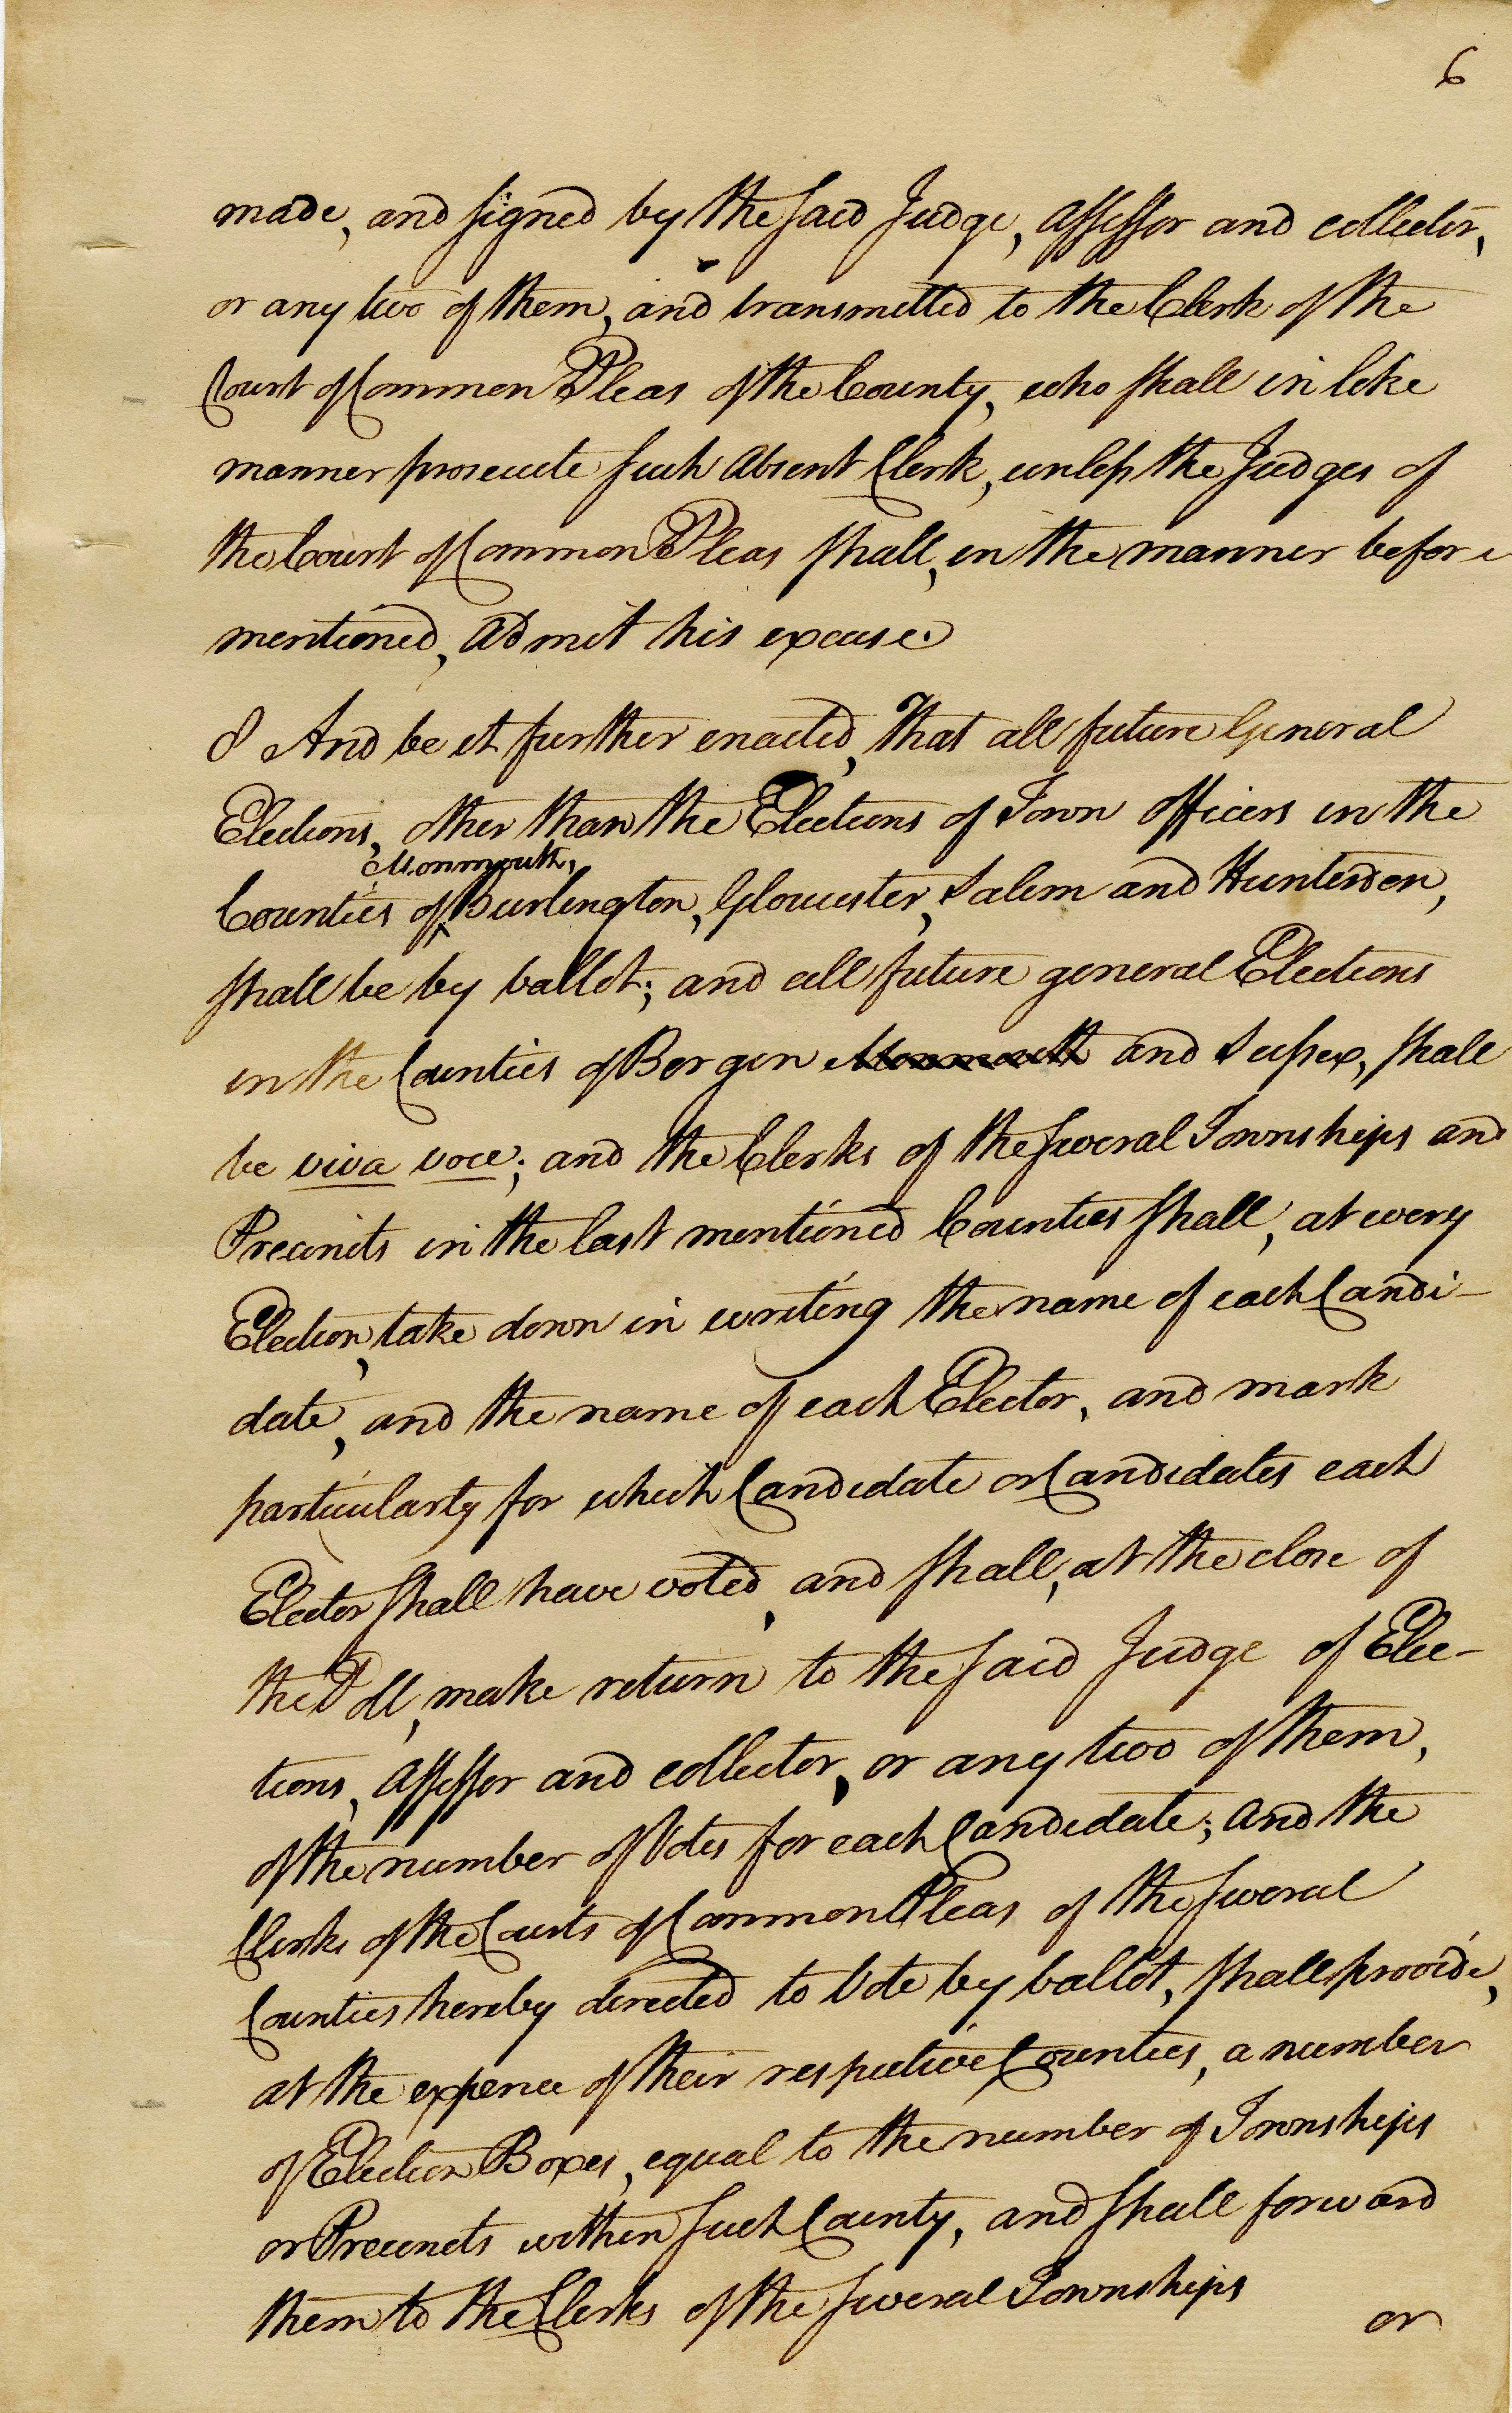 6
made, and signed by the said Judge, assessor and collector,
or any two of them, and transmitted to the Clerk of the
Court of Common Pleas of the County, who shall in like
manner prosecute such absent Clerk, unless the Judges of
the Court of Common Pleas shall, in the manner before
mentioned, admit his excuse.
8 And be it further enacted, That all future General
Elections, other than the Elections of Town officers in the
Monmouth,
Counties of ^ Burlington, Gloucester, Salem and Hunterdon,
shall be by ballot; and all future general Elections
in the Counties of Bergen Monmouth and Sussex, shall
be viva voce; and the Clerks of the several Townships and
Precincts in the last mentioned Counties shall, at every
Election, take down in writing the name of each Candi-
date, and the name of each Elector, and mark
particularly for which Candidate or Candidates each
Elector shall have voted, and shall, at the close of
the Poll, make return to the said Judge of Elec-
tions, assessor and collector, or any two of them,
of the number of Votes for each Candidate; and the
Clerks of the Courts of Common Pleas of the several
Counties hereby directed to Vote by ballot, shall provide,
at the expence of their respective Counties, a number
of Election Boxes, equal to the number of Townships
or Precincts within such County, and shall forward
them to the Clerks of the several Townships
or